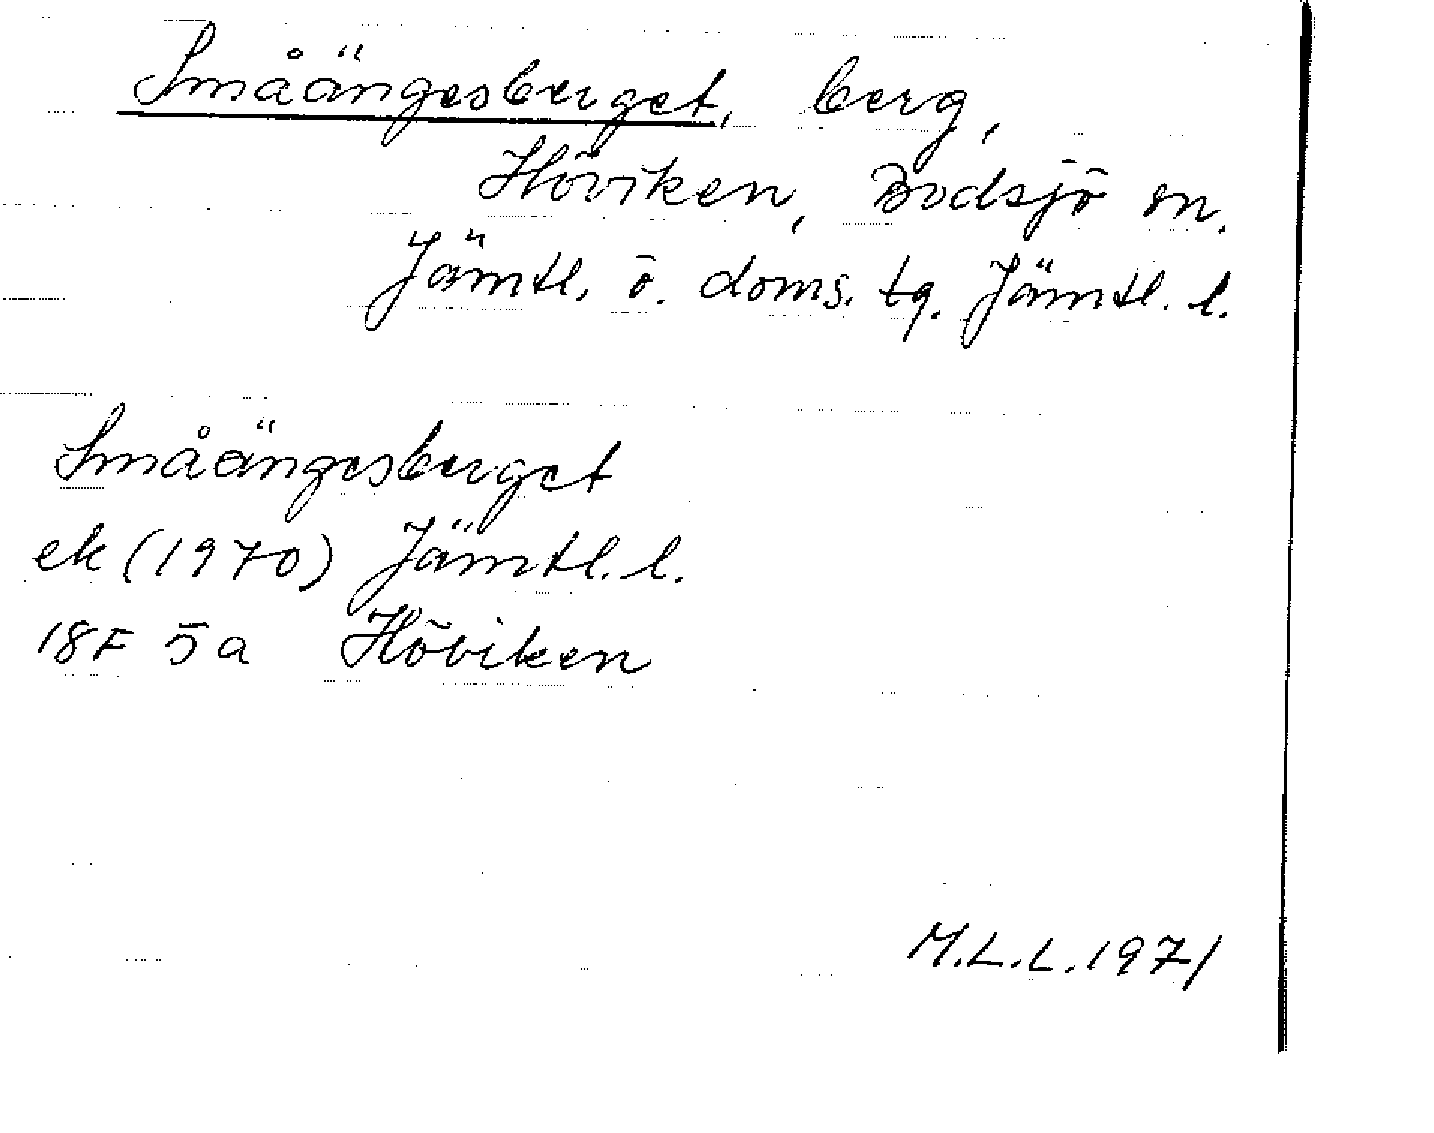 Småängesberget, berg,
Höviken, Bodsjö sn.
Jämtl. ö. doms. tg. Jämtl. l.
Småängesberget
ek (1970) Jämtl. l.
18F 5a Höviken
M.L.L. 1971